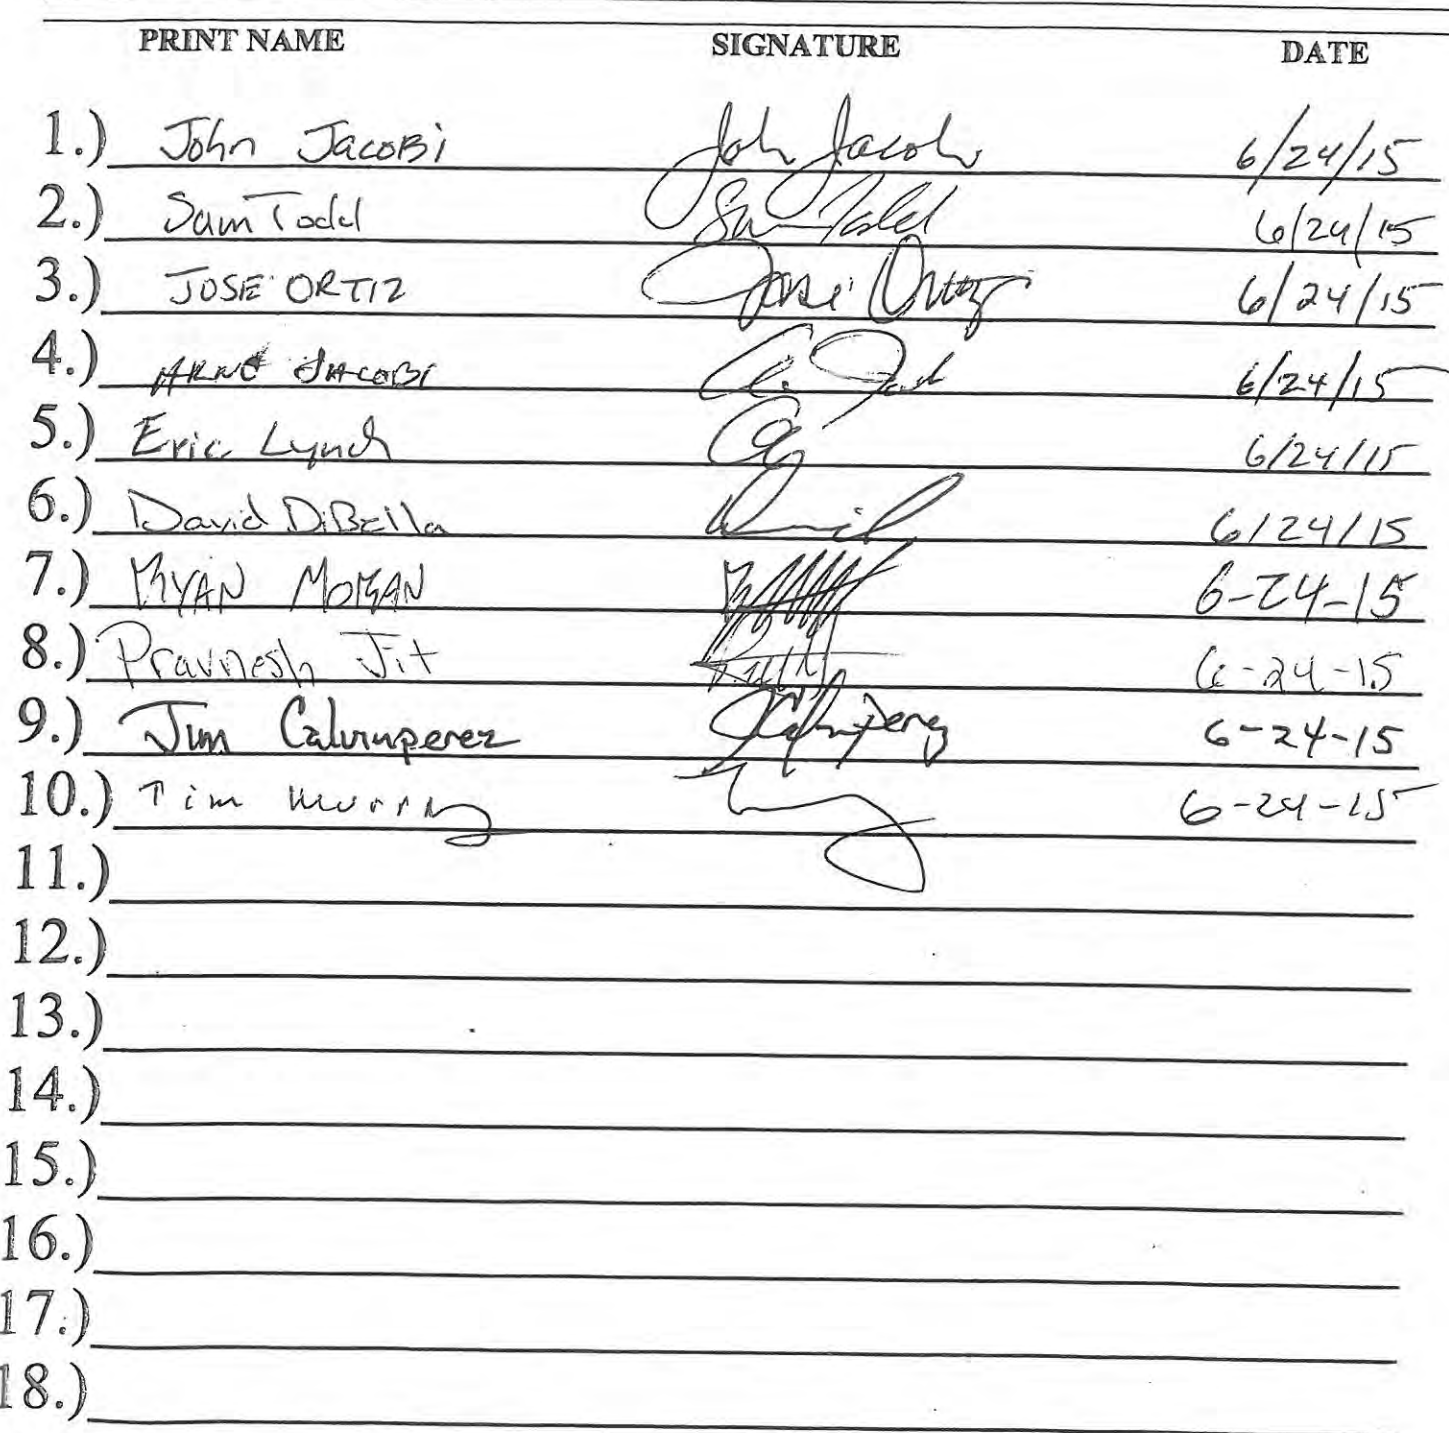 PRINT NAME SIGNATURE DATE
1.) John Jacobi John Jacobi 6/24/15
2.) Sam Todd Sam Todd 6/24/15
3.) JOSE ORTIZ Jose Ortiz 6/24/15
4.) ARNE JACOBI 6/24/15
5.) Eric Lynch 6/24/15
6.) David DiBella 6/24/15
7.) RYAN MORAN 6-24-15
8.) Pravnesh Jit 6-24-15
9.) Jim Calvinperez 6-24-15
10.) Tim Murray 6-24-15
11.)
12.)
13.)
14.)
15.)
16.)
17.)
18.)